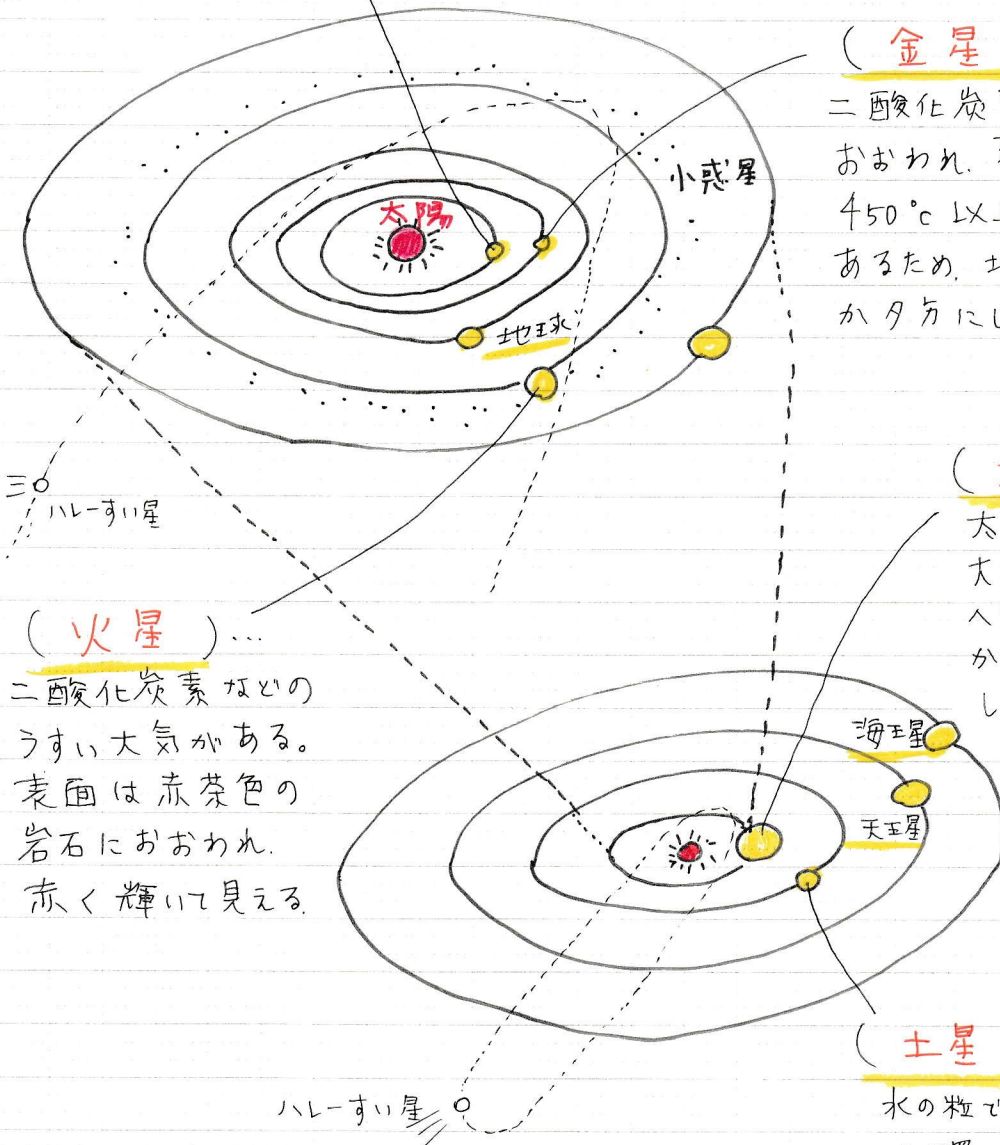 (金星
二酸化炭
おおわれ、
450℃以上
あるため、土
か夕方にし
小惑星
太陽
地球
ハレーすい星
(火星)…
二酸化炭素などの
うすい大気がある。
表面は赤茶色の
岩石におおわれ、
赤く輝いて見える。
(
太
大
へ
か
し
海王星
天王星
ハレーすい星
(土星
氷の粒で